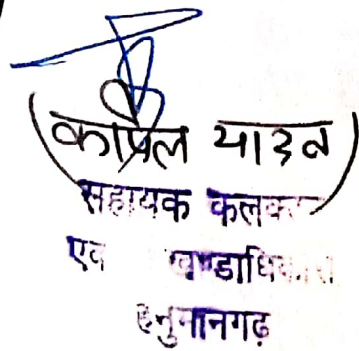 (कपिल यादव)
सहायक कलक्टर
एवं खण्डाधिकारी
हनुमानगढ़